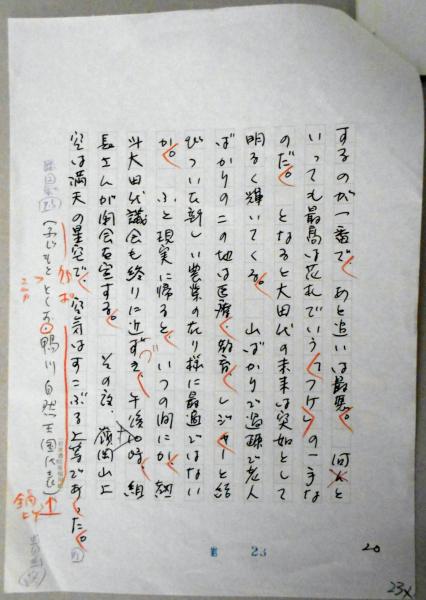 するのが一番で、あと追いは最悪。何と
いっても最高は花札でいう「つけ」の一手な
のだ。となると大田代の未来は突如として
明るく輝いてくる。山ばかりで過疎で老人
ばかりのこの地は医療、教育、レジャーと結
びついた新しい農業の在り様に最適ではない
か。ふと現実に帰ると、いつの間にか、
大田代議会も終りに近ずき、午後10時、組
長さんが閉会を宣する。その後、嶺岡山上
空は満天の星空で、空気はすこぶる上等であった。
鴨川自然王国代表)
20
23